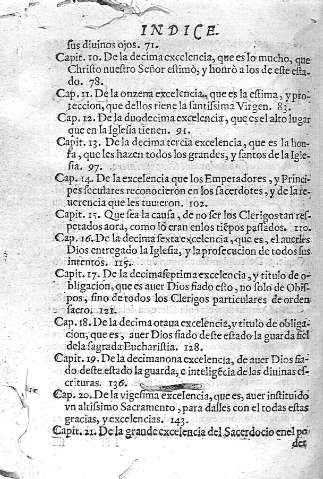 INDICE.
sus diuinos ojos. 71.
Capit. 10. De la decima excelencia, que es lo mucho, que
Christo nuestro Señor estimò, y honrò a los de este esta-
do. 78.
Cap. 11. De la onzena excelencia, que es la estima, y pro-
teccion, que dellos tiene la santissima Virgen. 83.
Cap. 12. De la duodecima excelencia, que es el alto lugar
que en la Iglesia tienen. 91.
Capit. 13. De la decima tercia excelencia, que es la hon-
ra, que les hazen todos los grandes, y santos de la Igle-
sia. 97.
Cap. 14. De la excelencia que los Emperadores, y Princi-
pes seculares reconocieron en los sacerdotes, y de la re-
uerencia que les tuuieron. 102.
Capit. 15. Que sea la causa, de no ser los Clerigos tan res-
petados aora, como lo eran en los tiẽpos passados. 110.
Cap. 16. De la decima sexta excelencia, que es, el auerles
Dios entregado la Iglesia, y la prosecucion de todos sus
intentos. 115.
Capit. 17. De la decimaseptima excelencia, y titulo de o-
bligacion, que es auer Dios fiado esto, no solo de Obis-
pos, sino de todos los Clerigos particulares de orden
sacro. 121.
Cap. 18. De la decima otaua excelencia, y titulo de obliga-
cion, que es, auer Dios fiado deste estado la guarda fiel
de la sagrada Eucharistia. 128.
Capit. 19. De la decimanona excelencia, de auer Dios fia-
do deste estado la guarda, e inteligẽcia de las diuinas es-
crituras. 136.
Cap. 20. De la vigesima excelencia, que es, auer instituido
vn altissimo Sacramento, para dalles con el todas estas
gracias, y excelencias. 143.
Capit. 21. De la grande excelencia del Sacerdocio en el po
der